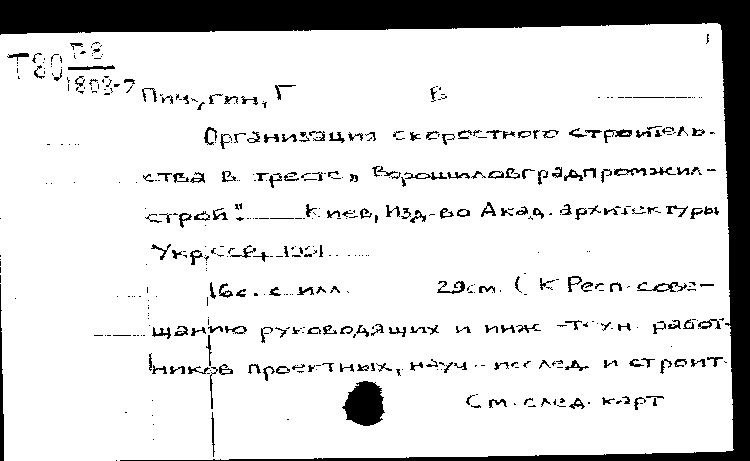 1
Т80 В8
1808-7
Пичугин, Г В
Организация скоростного строитель-
ства в тресте „Ворошиловградпромжил-
строй". Киев, Изд-во Акад. архитектуры
Укр.ССР, 1951
16с. с илл. 29см. (К Респ. сове-
щанию руководящих и инж.-техн. работ-
ников проектных, науч.-исслед. и строит.
См. след. карт